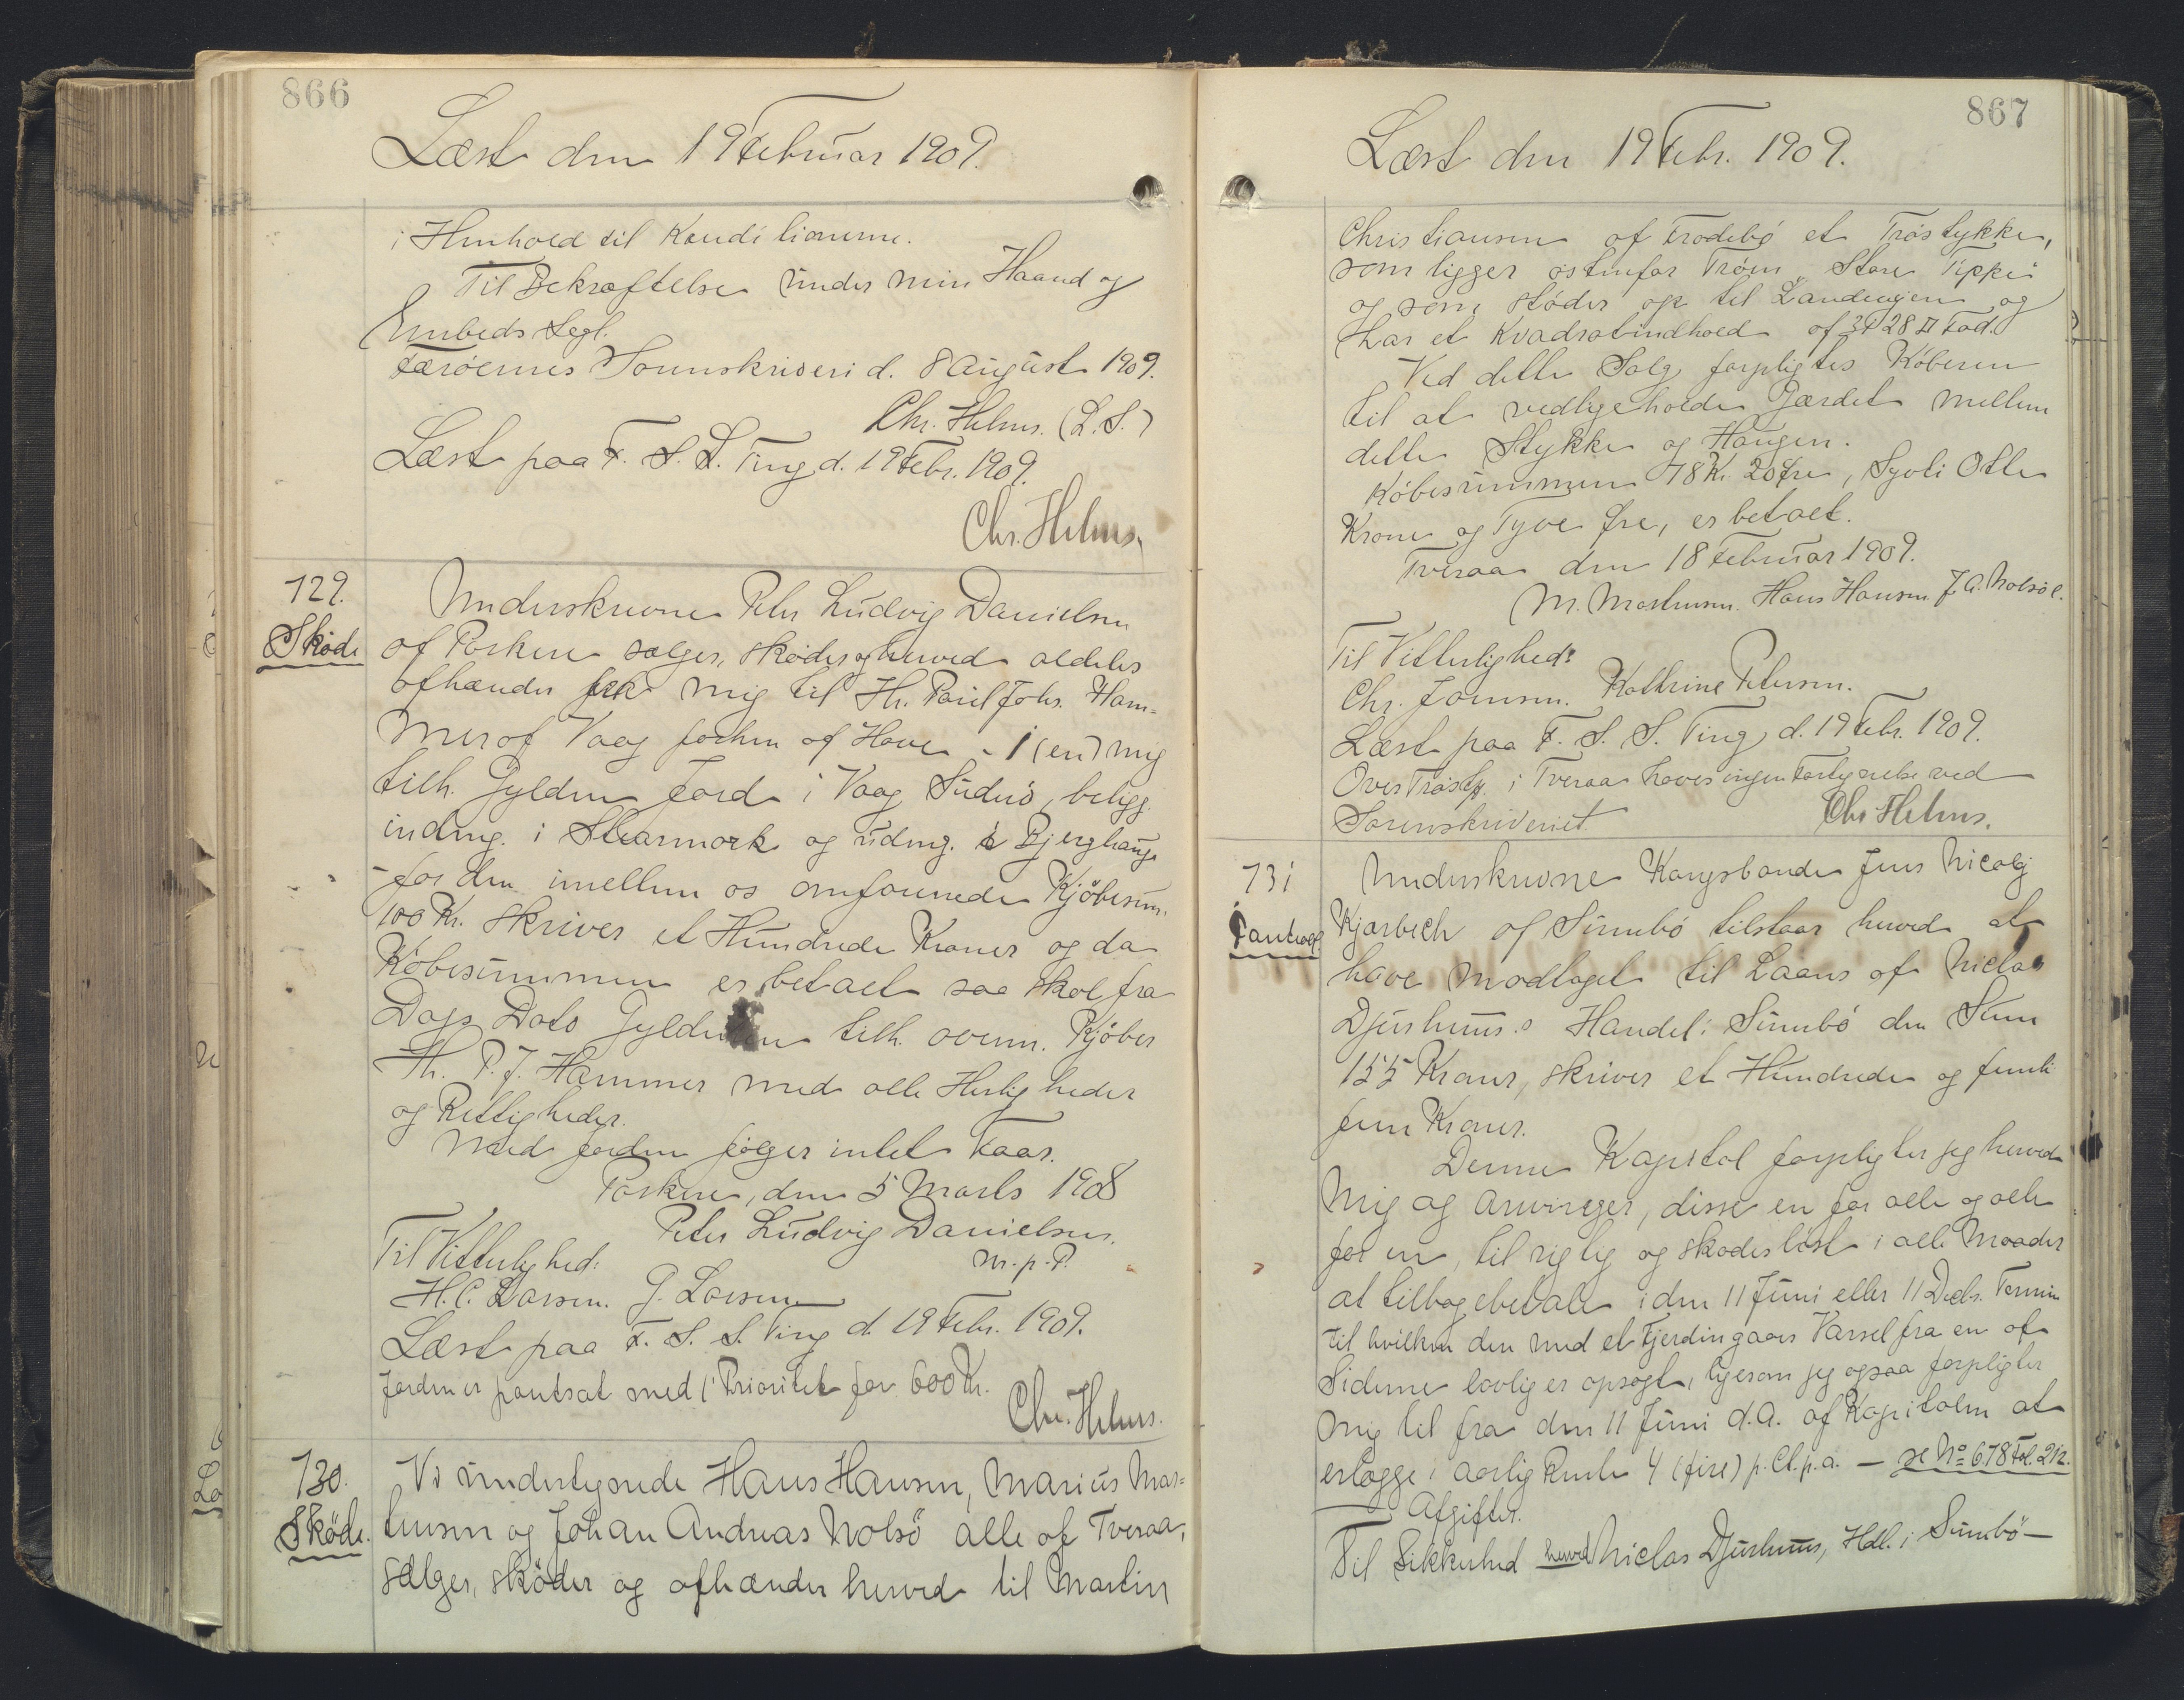 866
Læst den 19 Februar 1909.
i Henhold til Konditionerne.
Til Bekræftelse under min Haand og
Embeds Segl.
Færøernes Sorenskriveri d. 8 August 1909.
Chr. Helms. (L.S.)
Læst paa F. S. S. Ting d. 19 Febr. 1909.
Chr. Helms.
129.
Skøde
Underskrevne Peter Ludvig Danielsen
af Porkere sælger, skøder og herved aldeles
afhænder fra mig til Hr. Poul Johs. Ham=
mer af Vaag forhen af Hove - 1 (en) mig
tilh. Gylden Jord i Vaag Suderö, beligg.
indmg. i og udmg. i Bjerghauge
- for den imellem os omforenede Kjöbesum.
100 Kr. skriver et Hundrede Kroner og da
Köbesummen er betalt saa skal fra
Dags Dato Gylden tilh. ovenn. Kjöber
Hr. P. J. Hammer med alle Herligheder
og Rettigheder.
Med Jorden følger intet Faar.
Porkere, den 5 Marts 1908
Peter Ludvig Danielsen.
m. p. P.
Til Vitterlighed:
H. C. Larsen. G. Larsen
Læst paa F. S. S. Ting d. 19 Febr. 1909.
Jorden er pantsat med 1' Prioritet for 600 Kr.
Chr. Helms.
130.
Sköde.
Vi undertegnede Hans Hansen, Marius Mor=
tensen og Johan Andreas Nolsö alle af Tveraa,
sælger, sköder og afhænder herved til Martin
867
Læst den 19 Febr. 1909.
Christiansen af Frodebø et Trøstykke,
som ligger østenfor Trøen "Store Tippe"
og som støder op til Landevejen og
har et Kvadratindhold af 28 □ Fod.
Ved dette Salg forpligtes Køberen
til at vedligeholde Gærdet mellem
dette Stykke og Haugen.
Købesummen 78 Kr. 20 Øre, Syvti Otte
Krone og Tyve Øre, er betalt.
Tveraa den 18 Februar 1909.
M. Mortensen. Hans Hansen. J. A. Nolsøe.
Til Vitterlighed:
Chr. Joensen. Kathrine Petersen.
Læst paa F. S. S. Ting d. 19 Febr. 1909.
Over Trøsty. i Tveraa haves ingen Fortegnelse ved
Sorenskriveriet.
Chr Helms.
131
Pantobl.
Underskrevne Kongsbonde Jens Nicolaj
Kjærbech af Sumbö tilstaar herved at
have modtaget til Laans af Niclas
Djurhuus's Handel i Sumbö den Sum
155 Kroner, skriver et Hundrede og femti
fem Kroner.
Denne Kapital forpligter jeg herved
mig og Arvinger, disse en for alle og alle
for en, til rigtig og skadesløst i alle Maader
at tilbagebetale i den 11 Juni eller 11 Decbr. Termin
til hvilken den med et Fjerdingaars Varsel fra en af
Siderne lovlig er opsagt, ligesom jeg ogsaa forpligter
mig til fra den 11 Juni d.A. af Kapitalen at
erlægge i aarlig Rente 4 (fire) p. Ct. p. a. - se No 678 Fol. 212.
Afgifter.
Til Sikkerhed herved Niclas Djurhuus, Hdl. i Sumbö -